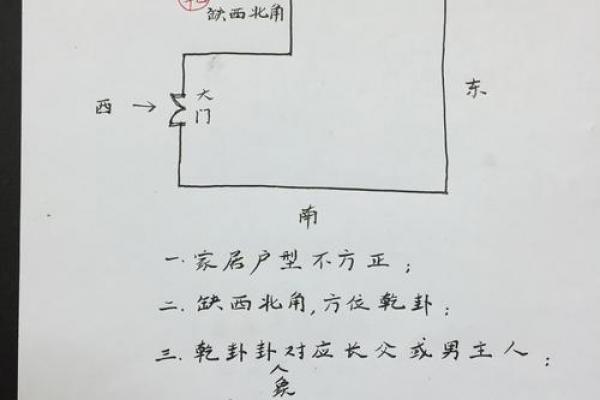 缺西北角
西
大门
东
南
一.家居户型不方正；
二.缺西北角,方位乾卦；
三.乾卦卦对应长父或男主人；
人
象